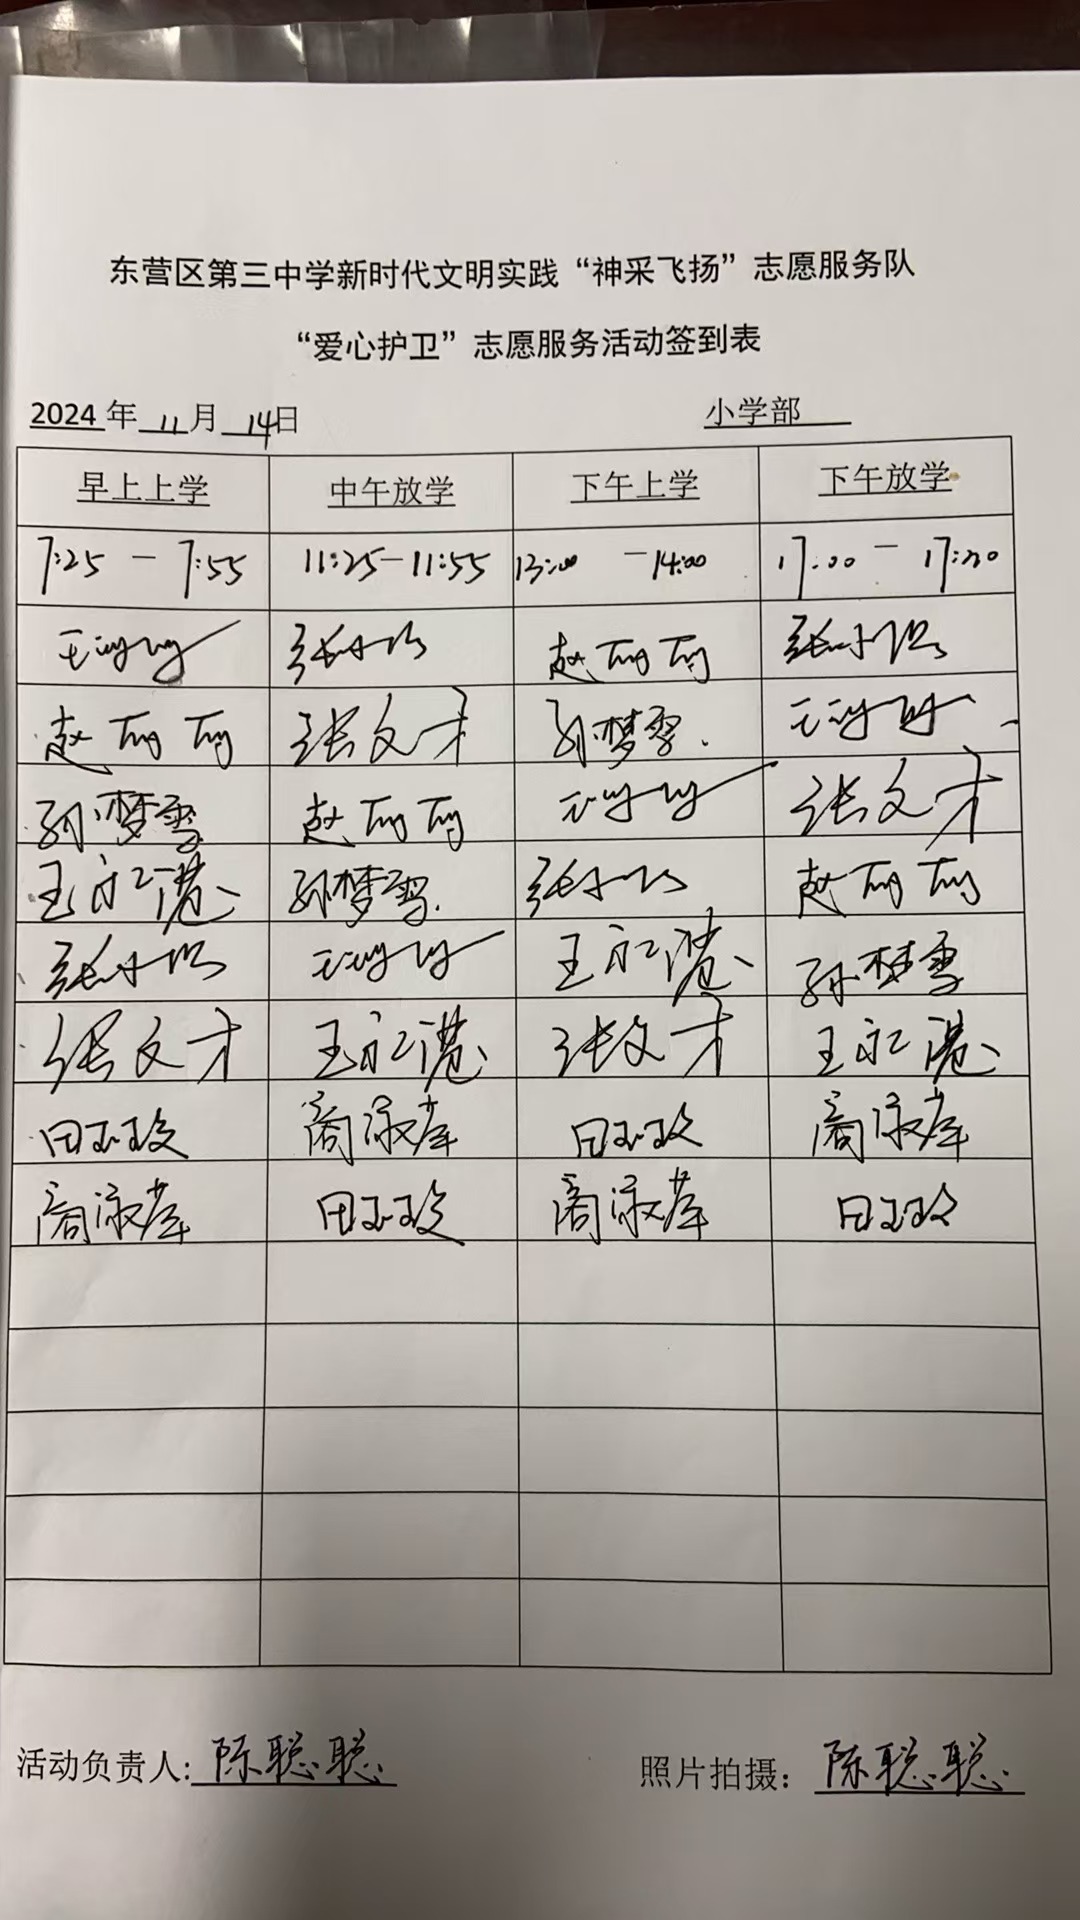 东营区第三中学新时代文明实践“神采飞扬”志愿服务队
“爱心护卫”志愿服务活动签到表
2024 年 11 月 14日 小学部
早上上学 中午放学 下午上学 下午放学
7:25 — 7:55 11:25—11:55 13:00 —14:00 17:00 — 17:30
赵丽丽
赵丽丽 张文才 孙梦雪
孙梦雪 赵丽丽 张文才
王永港 孙梦雪 赵丽丽
王永港 孙梦雪
张文才 王永港 张文才 王永港
田玉玫 商泳萍 田玉玫 商泳萍
商泳萍 田玉玫 商泳萍 田玉玫
活动负责人: 陈聪聪 照片拍摄: 陈聪聪